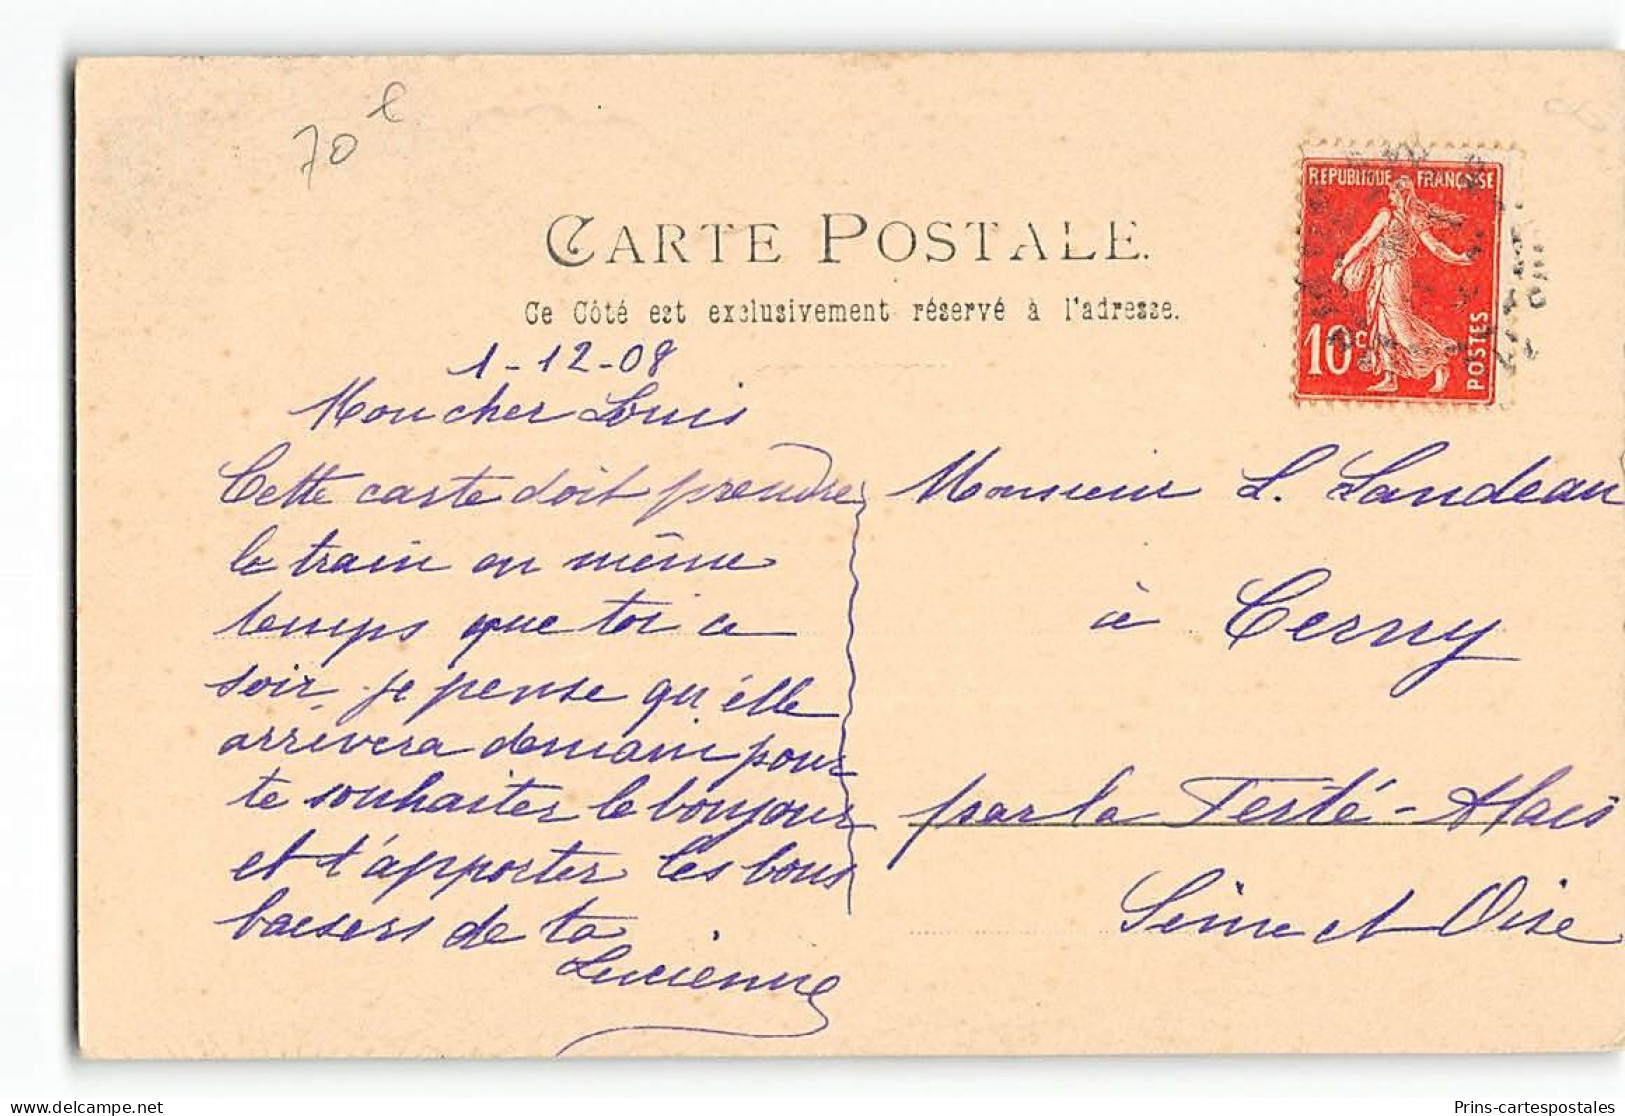 70 €
CARTE POSTALE.
Ce Côté est exclusivement réservé à l'adresse.
REPUBLIQUE FRANÇAISE
10c
POSTES
1-12-08
Mon cher Louis
Cette carte doit prendre
le train en même
temps que toi ce
soir, je pense qu'elle
arrivera demain pour
te souhaiter le bonjour
et t'apporter les bons
baisers de ta
Lucienne
Monsieur L. Landeau
à Cerny
par la Ferté-Alais
Seine et Oise
delcampe.net
Prins-cartespostales